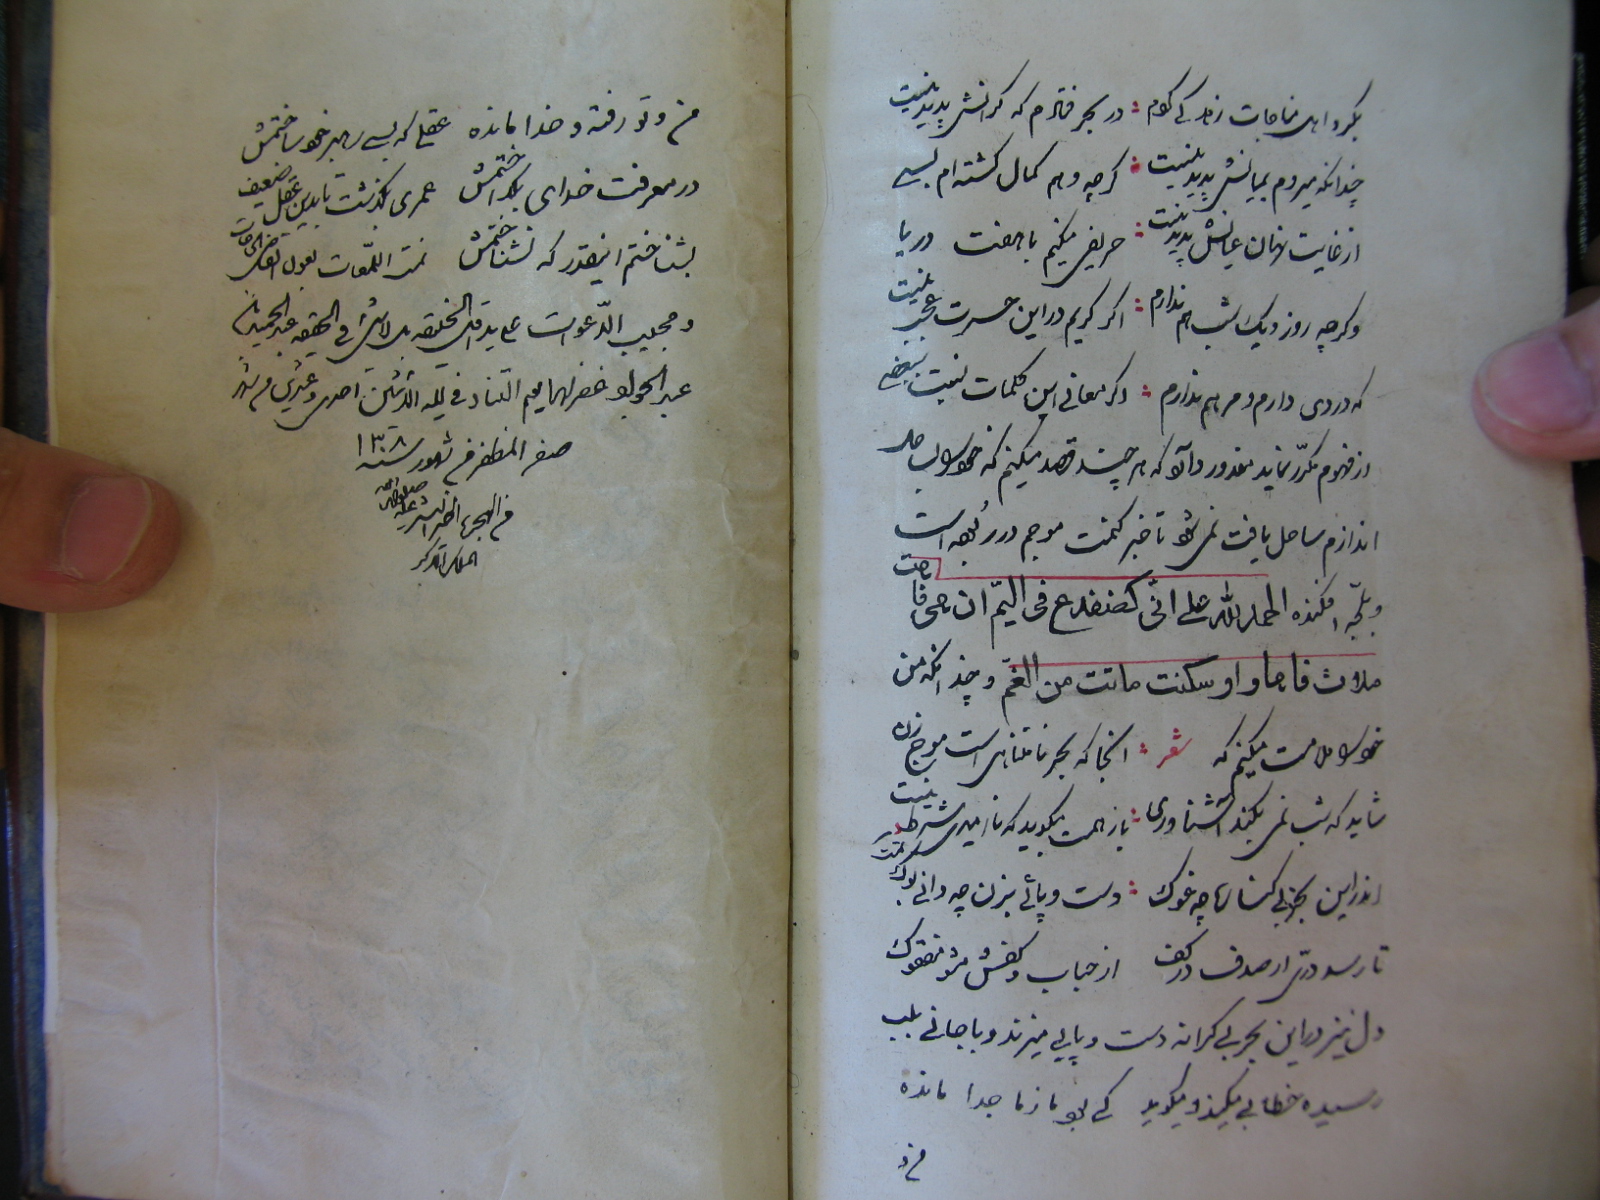 در بحر فتادم که کرانش پدید نیست
چندانکه میروم بمیانش پدید نیست : کرچه وهم کمال کشته ام بسی
از غایت نهان عیانش پدید نیست : حریفی میکنم با هفت دریا
وکرچه روز ویک شب نم ندارم : اکر کریم دراین حسرت عجب نیست
که دردی دارم و مرهم ندارم : وکر معانی این کلمات نیست ببعضی
از فهوم مکرر نماید معذور دار که هر چند قصد میکنم که خودرا ب
اندازم ساحل یافت نمی شود تا خبر کنمت موجم در ربوده است
وبلجه افکنده الحمد لله علی انّی کضفدع فی الیمّ ان هی فاهت
ملات فاها و او سکنت ماتت من الغمّ و چندانکه من
خودرا ملامت میکنم که شعر : انجا که بحر نامتناهی است موج زن
شاید که شب نمی نکند آشناوری : باز همت میکوید که ناامیدی شرط نیست
اندراین بحر بی کرانه چه غوک : دست و پائی بزن چه دانی بوک
تا رسد درّی از صدف در کف از حباب و کفش مشو
دل نیز دراین بحر بی کرانه دست و پایی میزند و با جانی بلب
رسیده خطابی میکند ومیکوید کی بود ما ز ما جدا مانده
من و
من و تو رفته و خدا مانده عقلی که بسی رهبر خود ساختمش
در معرفت خدای بکداختمش عمری بکذشت تا بدین عقل ضعیف
بشناختم اینقدر که نشناختمش تمت اللمعات بعون قاضی الحاجات
و مجیب الدّعوات علی ید اقل الخلیقه بل لاشئ فی الحقیقه عبد الحمید ابن
غفر لهما یوم التناد فی لیله الاثنین احدی وعشرین من شهر
صفر المظفر من شهور سنه ۱۳۰۸
من الهجرة